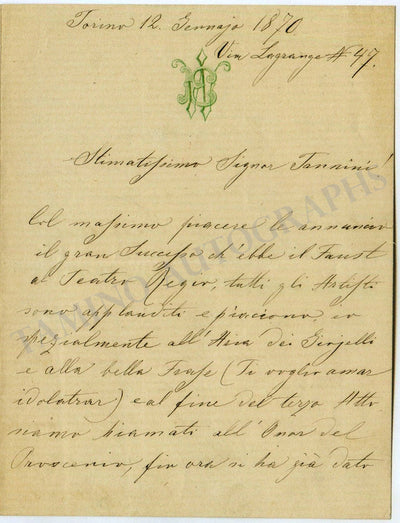 Torino 12. Gennajo 1870
Via Lagrange N. 47.
Stimatissimo Signor Tannini!
Col massimo piacere le annuncio
il gran Successo ch'ebbe il Faust
al Teatro Regio, tutti gli Artisti
sono applauditi e piaciono, io
spezialmente all'Aria dei Giojelli
e alla bella Frase (Ti voglio amar
idolatrar) e al fine del terzo Atto
siamo kiamati all'Onor del
Proscenio, fin ora si ha già dato
TAMINO AUTOGRAPHS